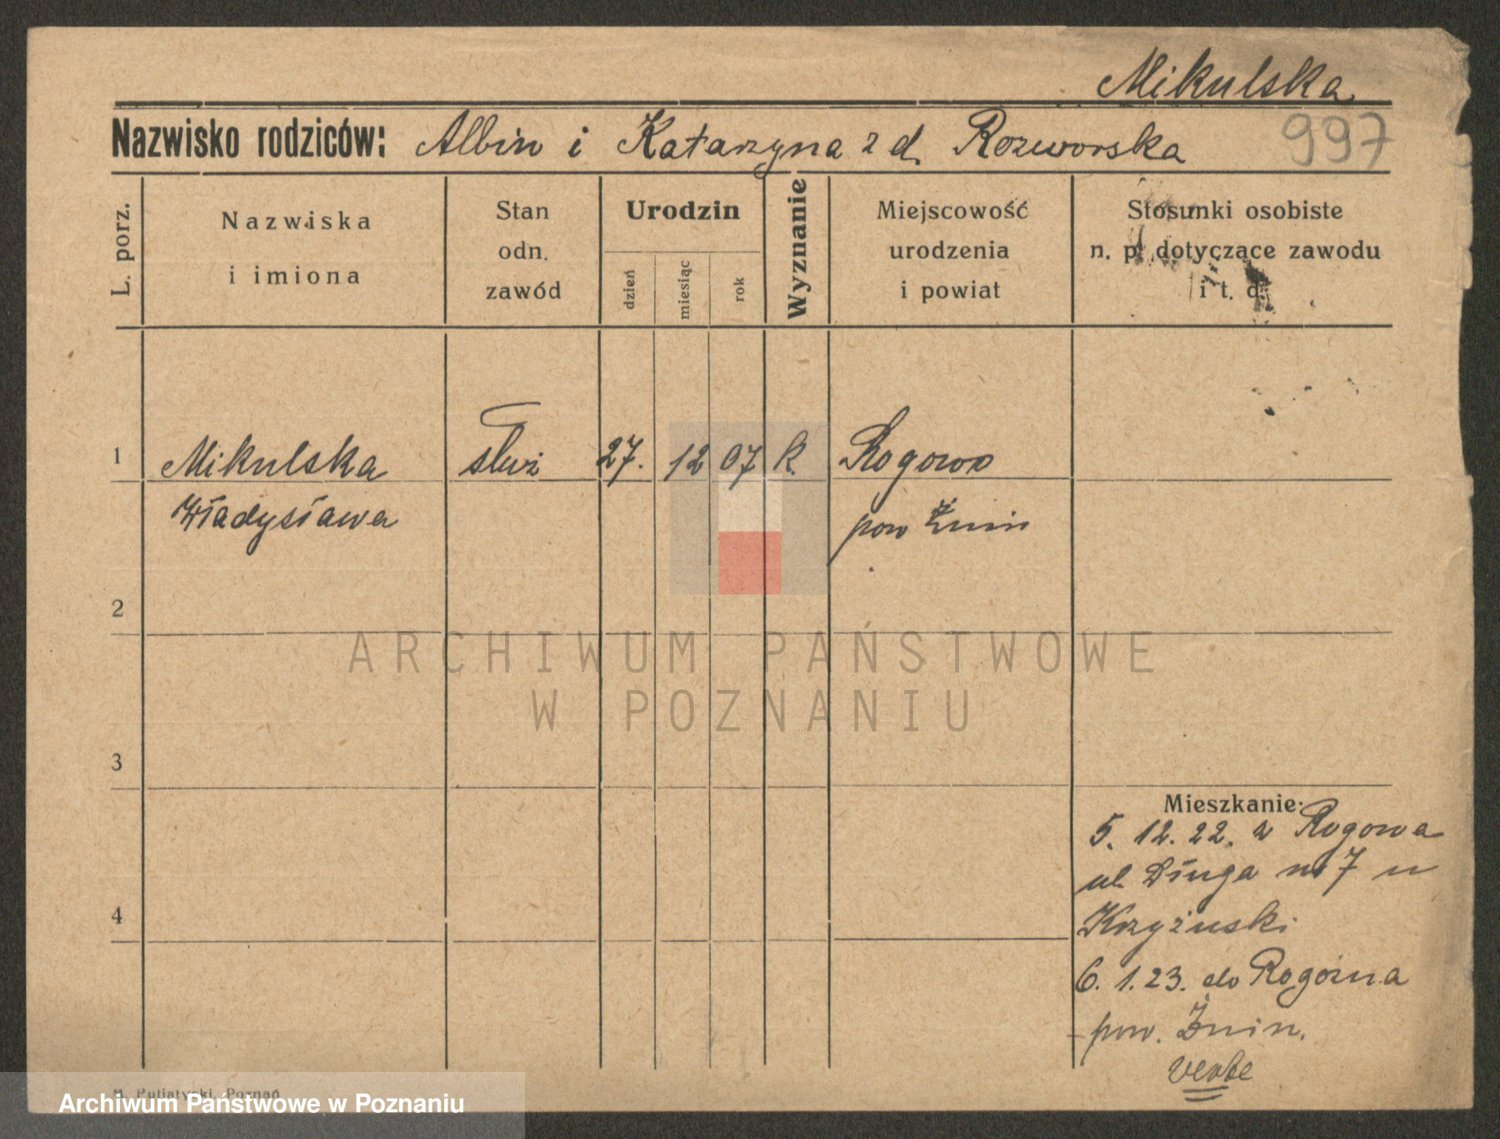 Mikulska
Nazwisko rodziców: Albin i Katarzyna z d. Rozworska 997
L. porz.
Nazwiska
i imiona
Stan
odn.
zawód
Urodzin
dzień
miesiąc
rok
Wyznanie
Miejscowość
urodzenia
i powiat
Stosunki osobiste
n. p. dotyczące zawodu
i t. d.
1 Mikulska służ 27. 12 07 k. Rogowo
Władysława pow Żnin
2
ARCHIWUM PAŃSTWOWE
W POZNANIU
3
Mieszkanie:
5. 12. 22. z Rogowa
ul. Długa nr 7 u
4
Krzyżuski
6. 1. 23. do Rogoźna
pow. Żnin.
verte
M. Putiatycki, Poznań
Archiwum Państwowe w Poznaniu